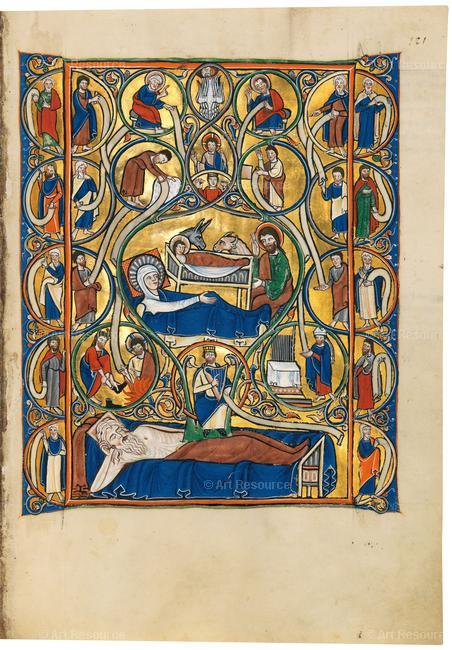 121
© Art Resource
© Art Resource
© Art Resource
© Art Resource
© Art Resource